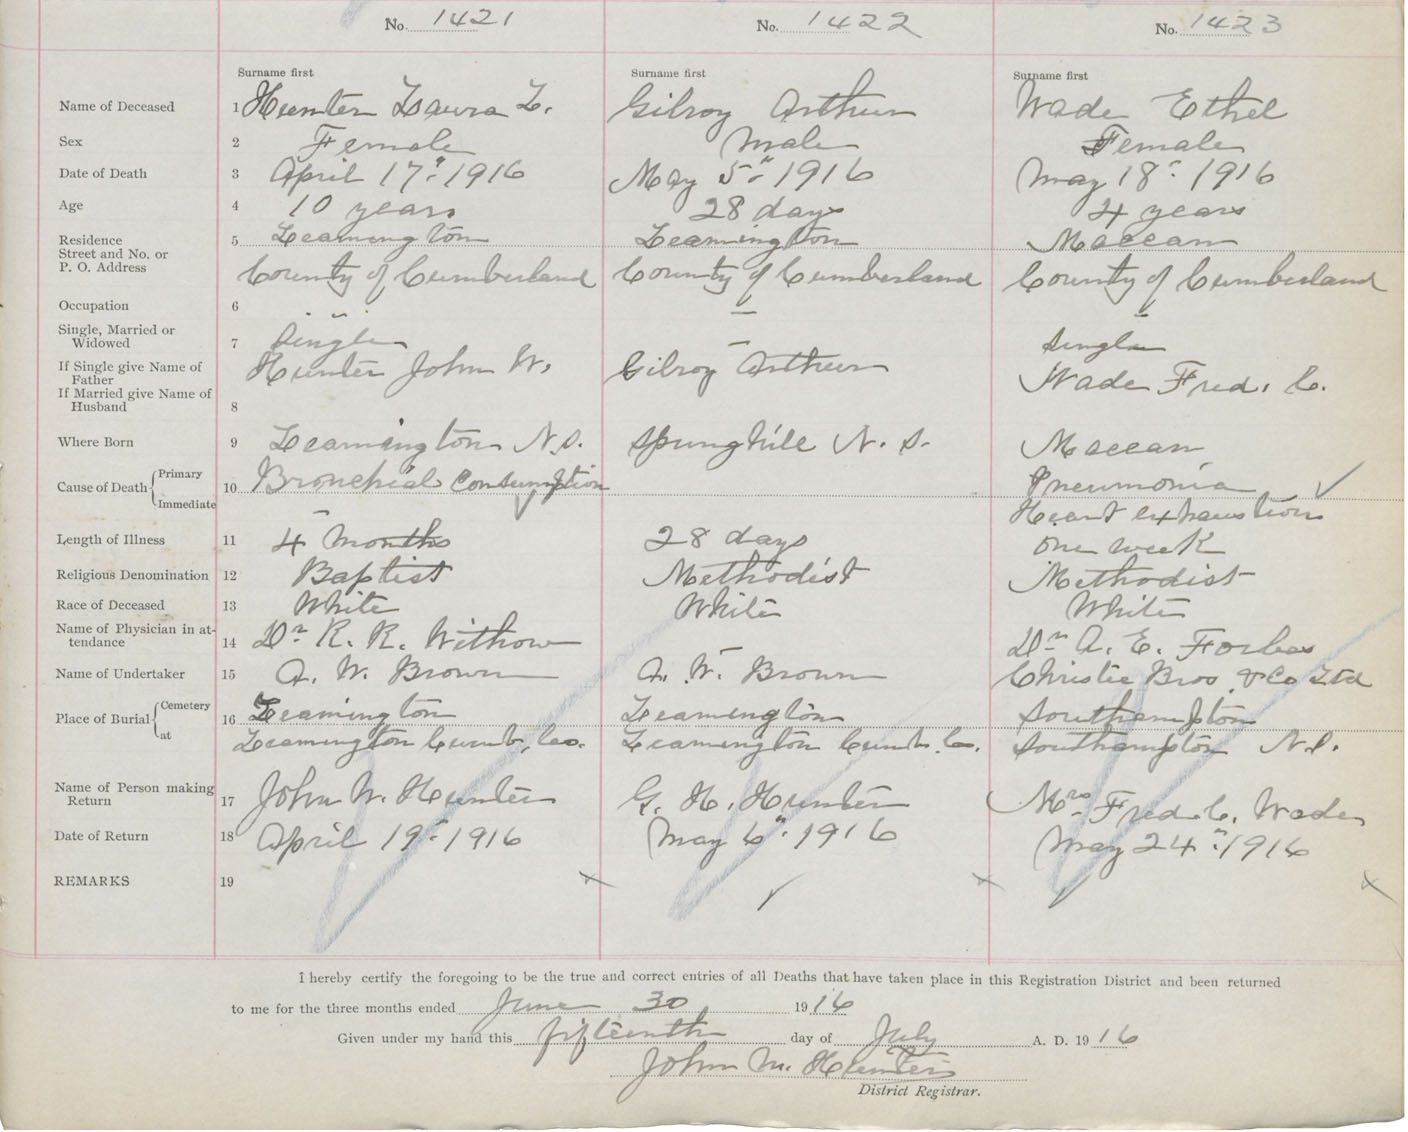 No. 1421 No. 1422 No. 1423
Surname first Surname first Surname first
Name of Deceased 1 Hunter Laura L. Gilroy Arthur Wade Ethel
Sex 2 Female Male Female
Date of Death 3 April 17" 1916 May 5" 1916 May 18" 1916
Age 4 10 years 28 days 4 years
Residence 5 Leamington Leamington Maccan
Street and No. or
P. O. Address County of Cumberland County of Cumberland County of Cumberland
Occupation 6 - - -
Single, Married or
Widowed 7 Single - Single
If Single give Name of
Father Hunter John W. Gilroy Arthur Wade Fred. C.
If Married give Name of
Husband 8
Where Born 9 Leamington N.S. Springhill N. S. Maccan
Cause of Death Primary 10 Bronchial Consumption Pneumonia
Immediate - Heart exhaustion
Length of Illness 11 4 Months 28 days one week
Religious Denomination 12 Baptist Methodist Methodist
Race of Deceased 13 White White White
Name of Physician in at-
tendance 14 Dr R. R. Withrow - Dr A. E. Forbes
Name of Undertaker 15 A. W. Brown A. W. Brown Christie Bros. & Co Ltd
Place of Burial Cemetery 16 Leamington Leamington Southampton
at Leamington Cumb. Co. Leamington Cumb. Co. Southampton N.S.
Name of Person making
Return 17 John W. Hunter G. H. Hunter Mrs Fred. C. Wade
Date of Return 18 April 19" 1916 May 6" 1916 May 24" 1916
REMARKS 19
I hereby certify the foregoing to be the true and correct entries of all Deaths that have taken place in this Registration District and been returned
to me for the three months ended June 30 1916
Given under my hand this fifteenth day of July A. D. 1916
John M. Hunter
District Registrar.